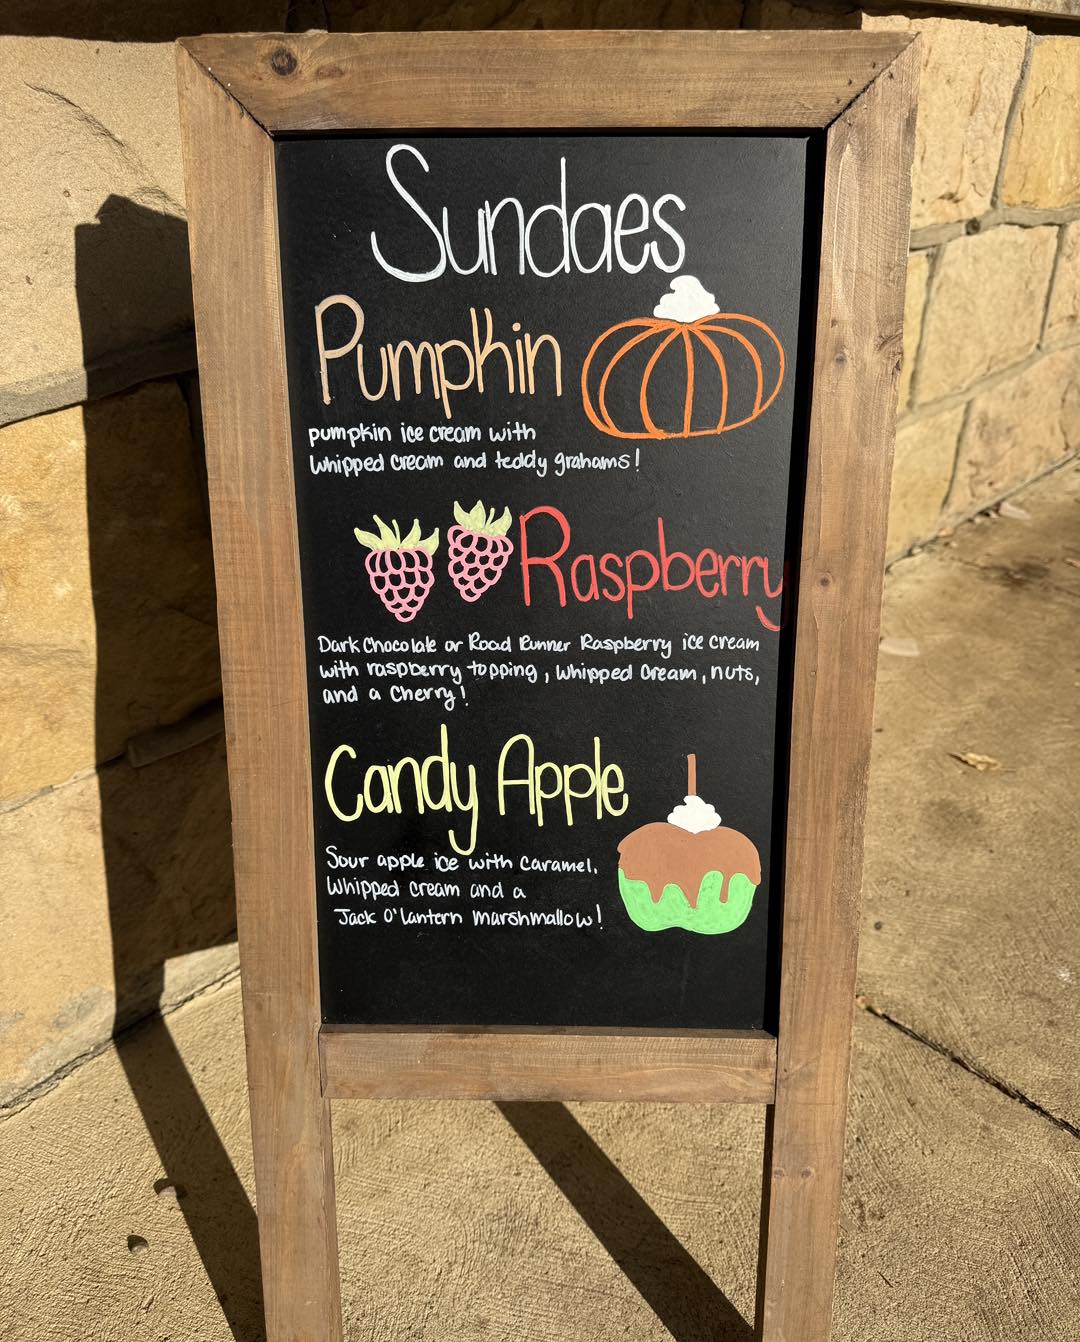 Sundaes
Pumpkin
pumpkin ice cream with
whipped cream and teddy grahams!
Raspberry
Dark Chocolate or Road Runner Raspberry ice cream
with raspberry topping, whipped cream, nuts,
and a cherry!
Candy Apple
Sour apple ice with caramel,
whipped cream and a
Jack O'lantern marshmallow!